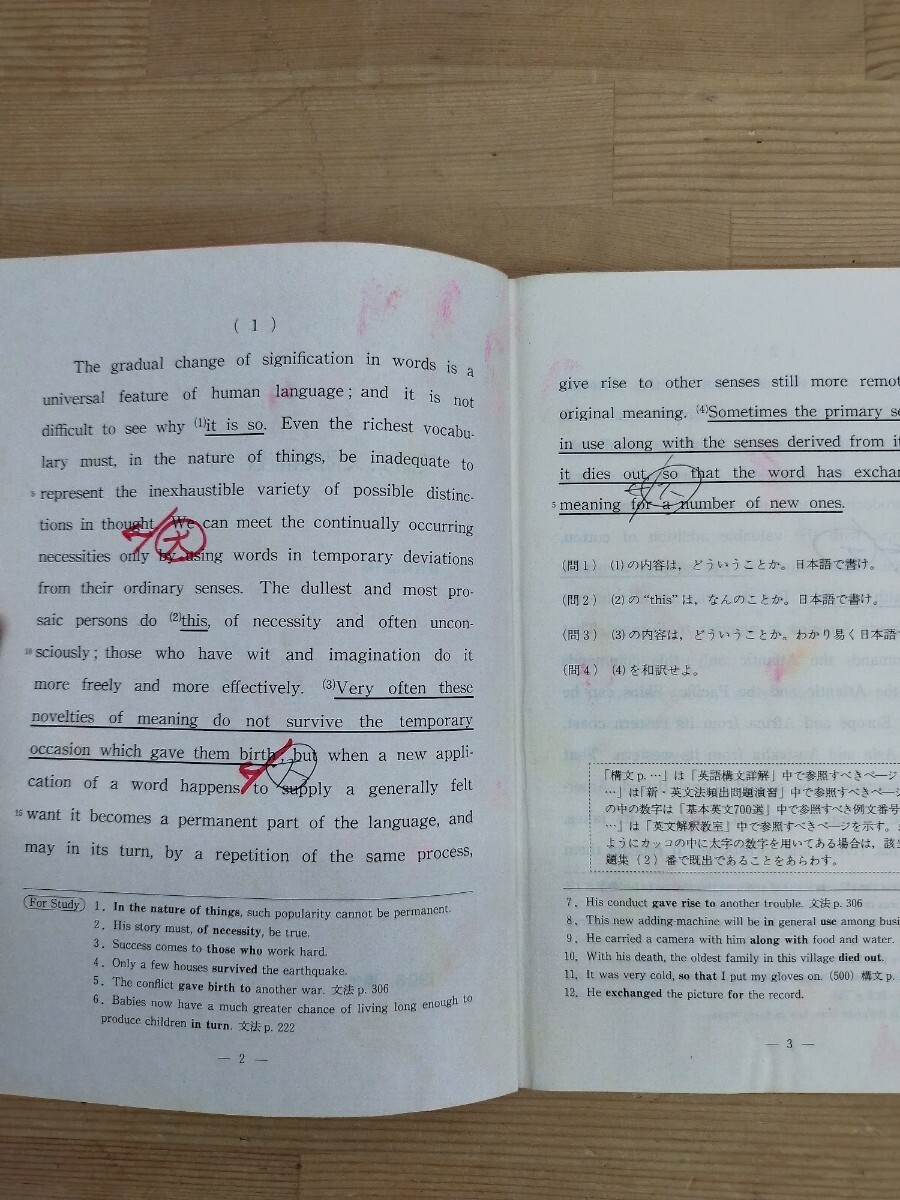 ( 1 )
The gradual change of signification in words is a
universal feature of human language; and it is not
difficult to see why (1)it is so. Even the richest vocabu-
lary must, in the nature of things, be inadequate to
5 represent the inexhaustible variety of possible distinc-
tions in thought. We can meet the continually occurring
necessities only by using words in temporary deviations
from their ordinary senses. The dullest and most pro-
saic persons do (2)this, of necessity and often uncon-
10 sciously; those who have wit and imagination do it
more freely and more effectively. (3)Very often these
novelties of meaning do not survive the temporary
occasion which gave them birth, but when a new appli-
cation of a word happens to supply a generally felt
15 want it becomes a permanent part of the language, and
may in its turn, by a repetition of the same process,
For Study 1. In the nature of things, such popularity cannot be permanent.
2. His story must, of necessity, be true.
3. Success comes to those who work hard.
4. Only a few houses survived the earthquake.
5. The conflict gave birth to another war. 文法 p. 306
6. Babies now have a much greater chance of living long enough to
produce children in turn. 文法 p. 222
— 2 —
give rise to other senses still more
original meaning. (4)Sometimes the primary
in use along with the senses derived from
it dies out, so that the word has
5 meaning for a number of new ones.
(問1) (1)の内容は，どういうことか。日本語で書け。
(問2) (2)の “this” は，なんのことか。日本語で書け。
(問3) (3)の内容は，どういうことか。わかり易く日本語
(問4) (4)を和訳せよ。
「構文 p. …」は「英語構文詳解」中で参照すべきページ
…」は「新・英文法頻出問題演習」中で参照すべきページ
の中の数字は「基本英文700選」中で参照すべき例文番号
…」は「英文解釈教室」中で参照すべきページを示す。
ようにカッコの中に太字の数字を用いてある場合は，
題集（2）番で既出であることをあらわす。
7. His conduct gave rise to another trouble. 文法 p. 306
8. This new adding-machine will be in general use among
9. He carried a camera with him along with food and water.
10. With his death, the oldest family in this village died out.
11. It was very cold, so that I put my gloves on. (500) 構文 p.
12. He exchanged the picture for the record.
— 3 —